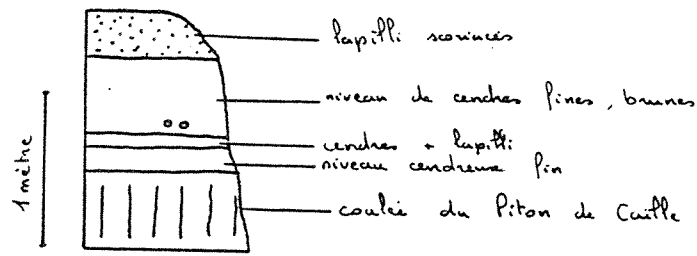 lapilli scoriacés
niveau de cendres fines, brunes
cendres + lapilli
niveau cendreux fin
coulée du Piton de Caille
1 mètre